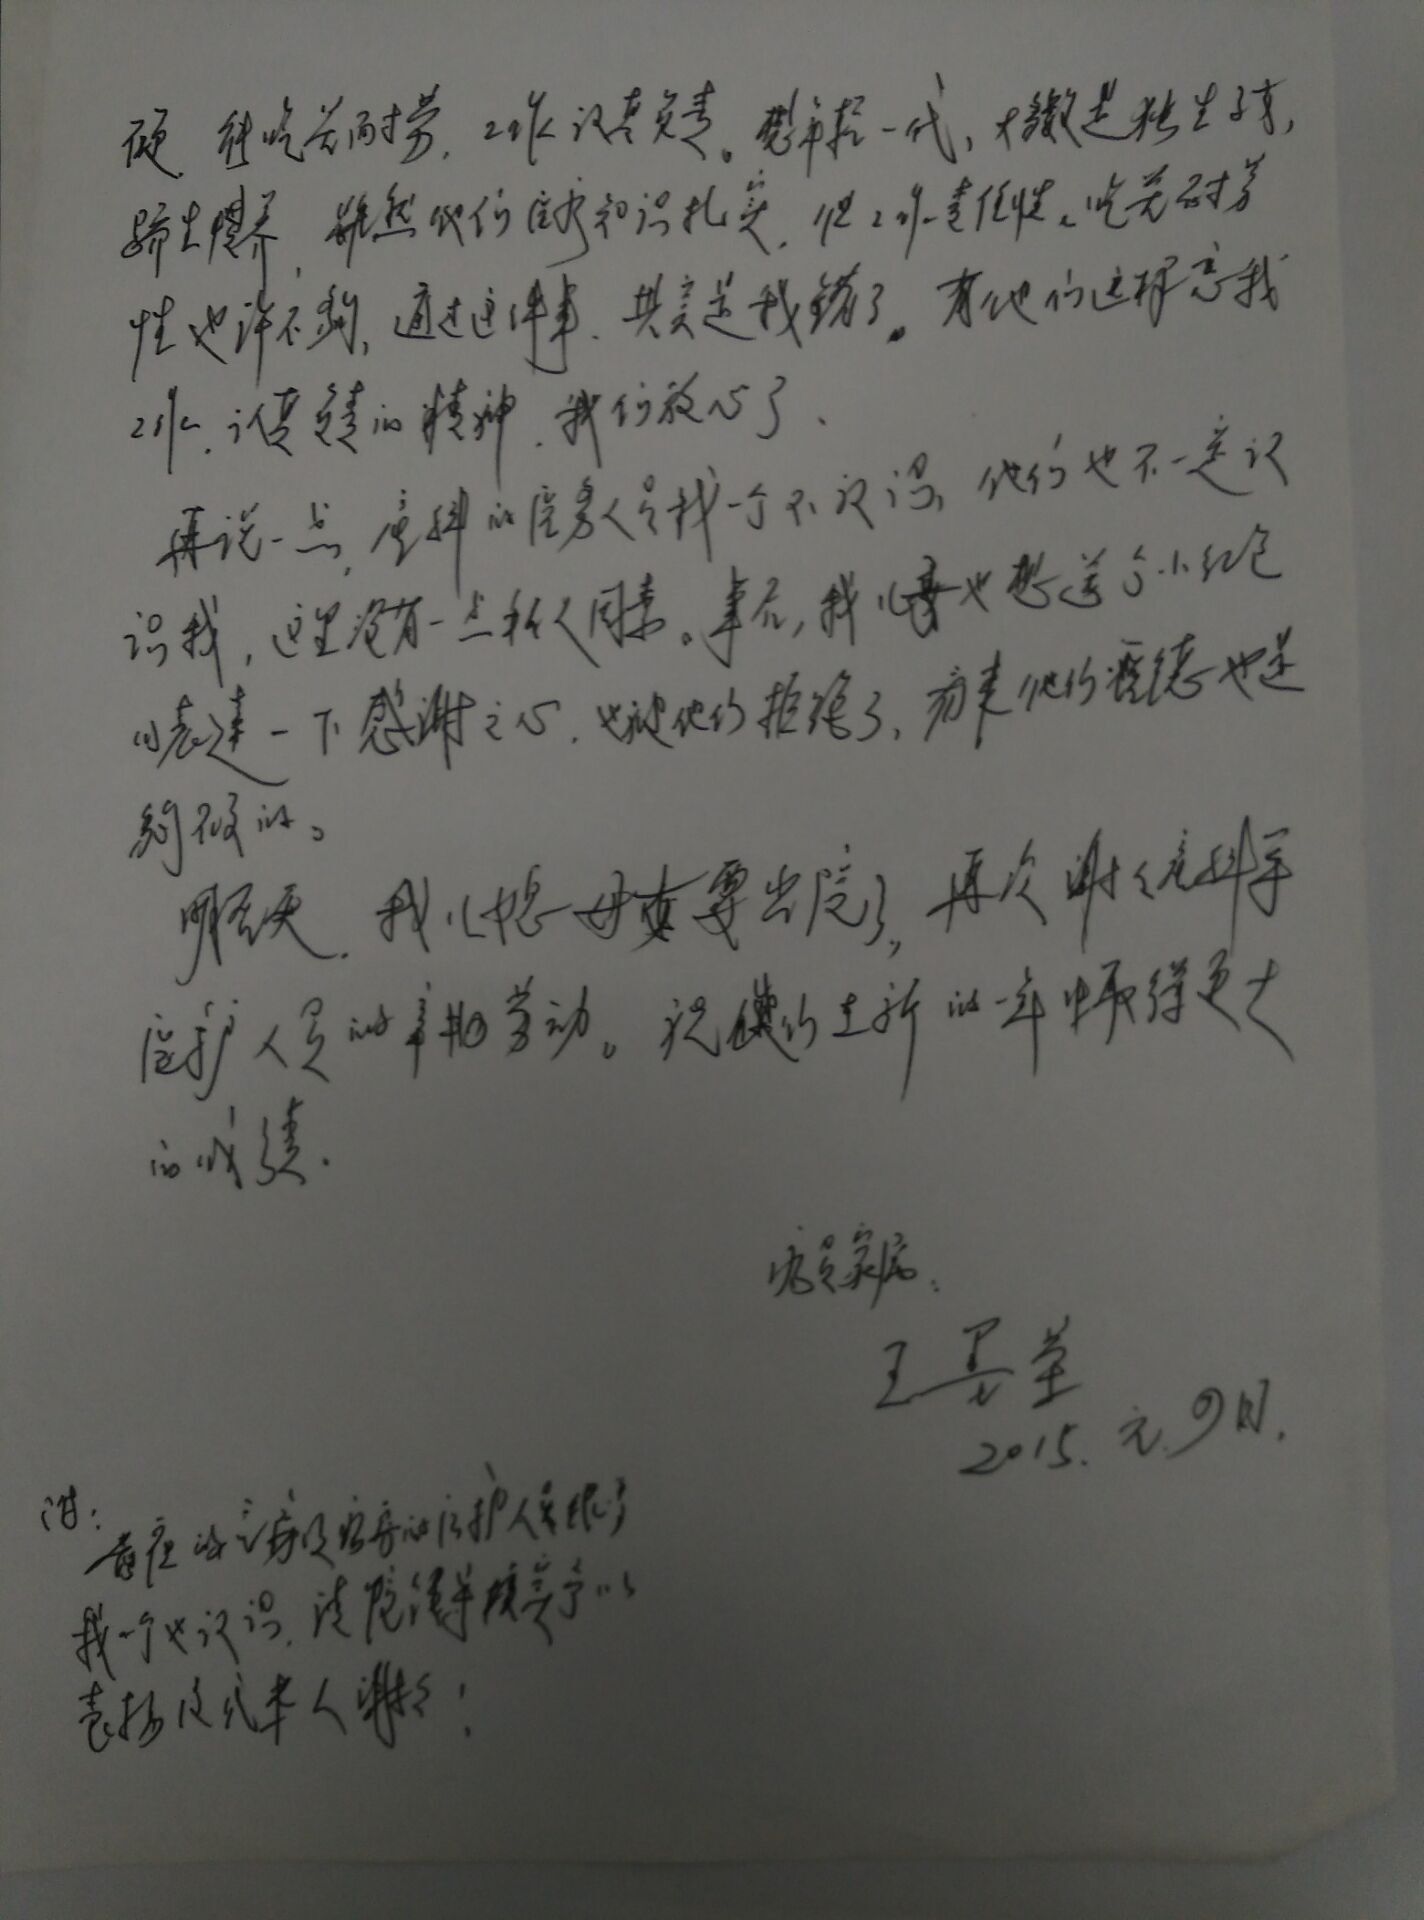 硬, 能吃苦耐劳, 工作认真负责。想年轻一代, 大数是独生子女,
娇生惯养, 虽然他们医学知识扎实, 但工作责任性、吃苦耐劳
性也许不够, 通过这件事, 其实是我错了。有他们这样忘我
工作、认真负责的精神, 我们放心了.
再说一点, 产科的医务人员我一个不认识, 他们也不一定认
识我, 这里没有一点私人因素。事后, 我儿媳也想送个小红包
以表达一下感谢之心, 也被他们拒绝了, 看来他们医德也是
够硬的。
明天, 我儿媳母女要出院了, 再次谢谢产科
医护人员的辛勤劳动。祝他们在新的一年中取得更大
的成绩.
病员家属:
王
2015. 元. 9日.
附:
的病房的医护人员
我一个也认识, 请院领导核实予以
表扬及代本人谢谢!